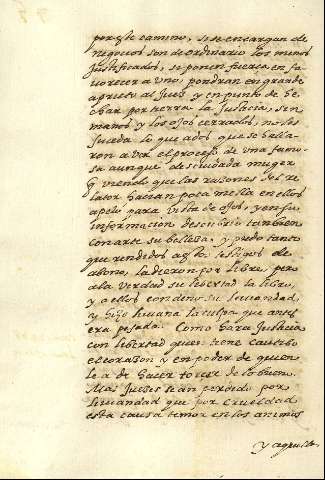 por este camino, si se encargan de
negocios son de ordinario los menos
justificados, si ponen fuerça en fa
uorecer a vno, pondran en grande
aprieto al Juez y en punto de he
char por tierra la Justicia, sin
manos y los ojos cerrados, no les
suceda lo que a dos que se halla
ron a ver el proceso de vna famo
sa aunque descuidada muger
q viendo que las razones del re
lator hacian poca mella en ellos
apelo para vista de ojos, y en su
informacion descubrio tambien
con arte su belleza, y pudo tanto
que rendidos a estos testigos de
abono, la dieron por libre, pero
a la verdad su libertad la libro,
y a ellos condeno su liuiandad,
y hizo liuiana la culpa que antes
era pesada. Como hara Justicia
con libertad quien tiene cautibo
el coraçon y en poder de quien
le a de hacer torcer de lo bueno.
Mas Jueces se an perdido por
liuiandad que por crueldad
esta causa temor en los animos